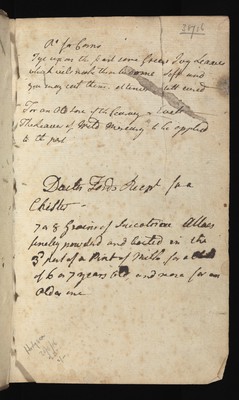 Rt for Corns
Tye upon the part some Green Ivy Leaves
which will make them become soft and
you may cut them, otherwise
For an Old Sore of the Country
The Leaves of Wild Mercury to be applied
to the part
Doctr Fords Recpt for a
Child
7 or 8 Grains of Succotorine Alloes
finely powdred and boiled in the
3d part of a Pint of Milk for a Child
of 6 or 7 years Old and more for an
Older one